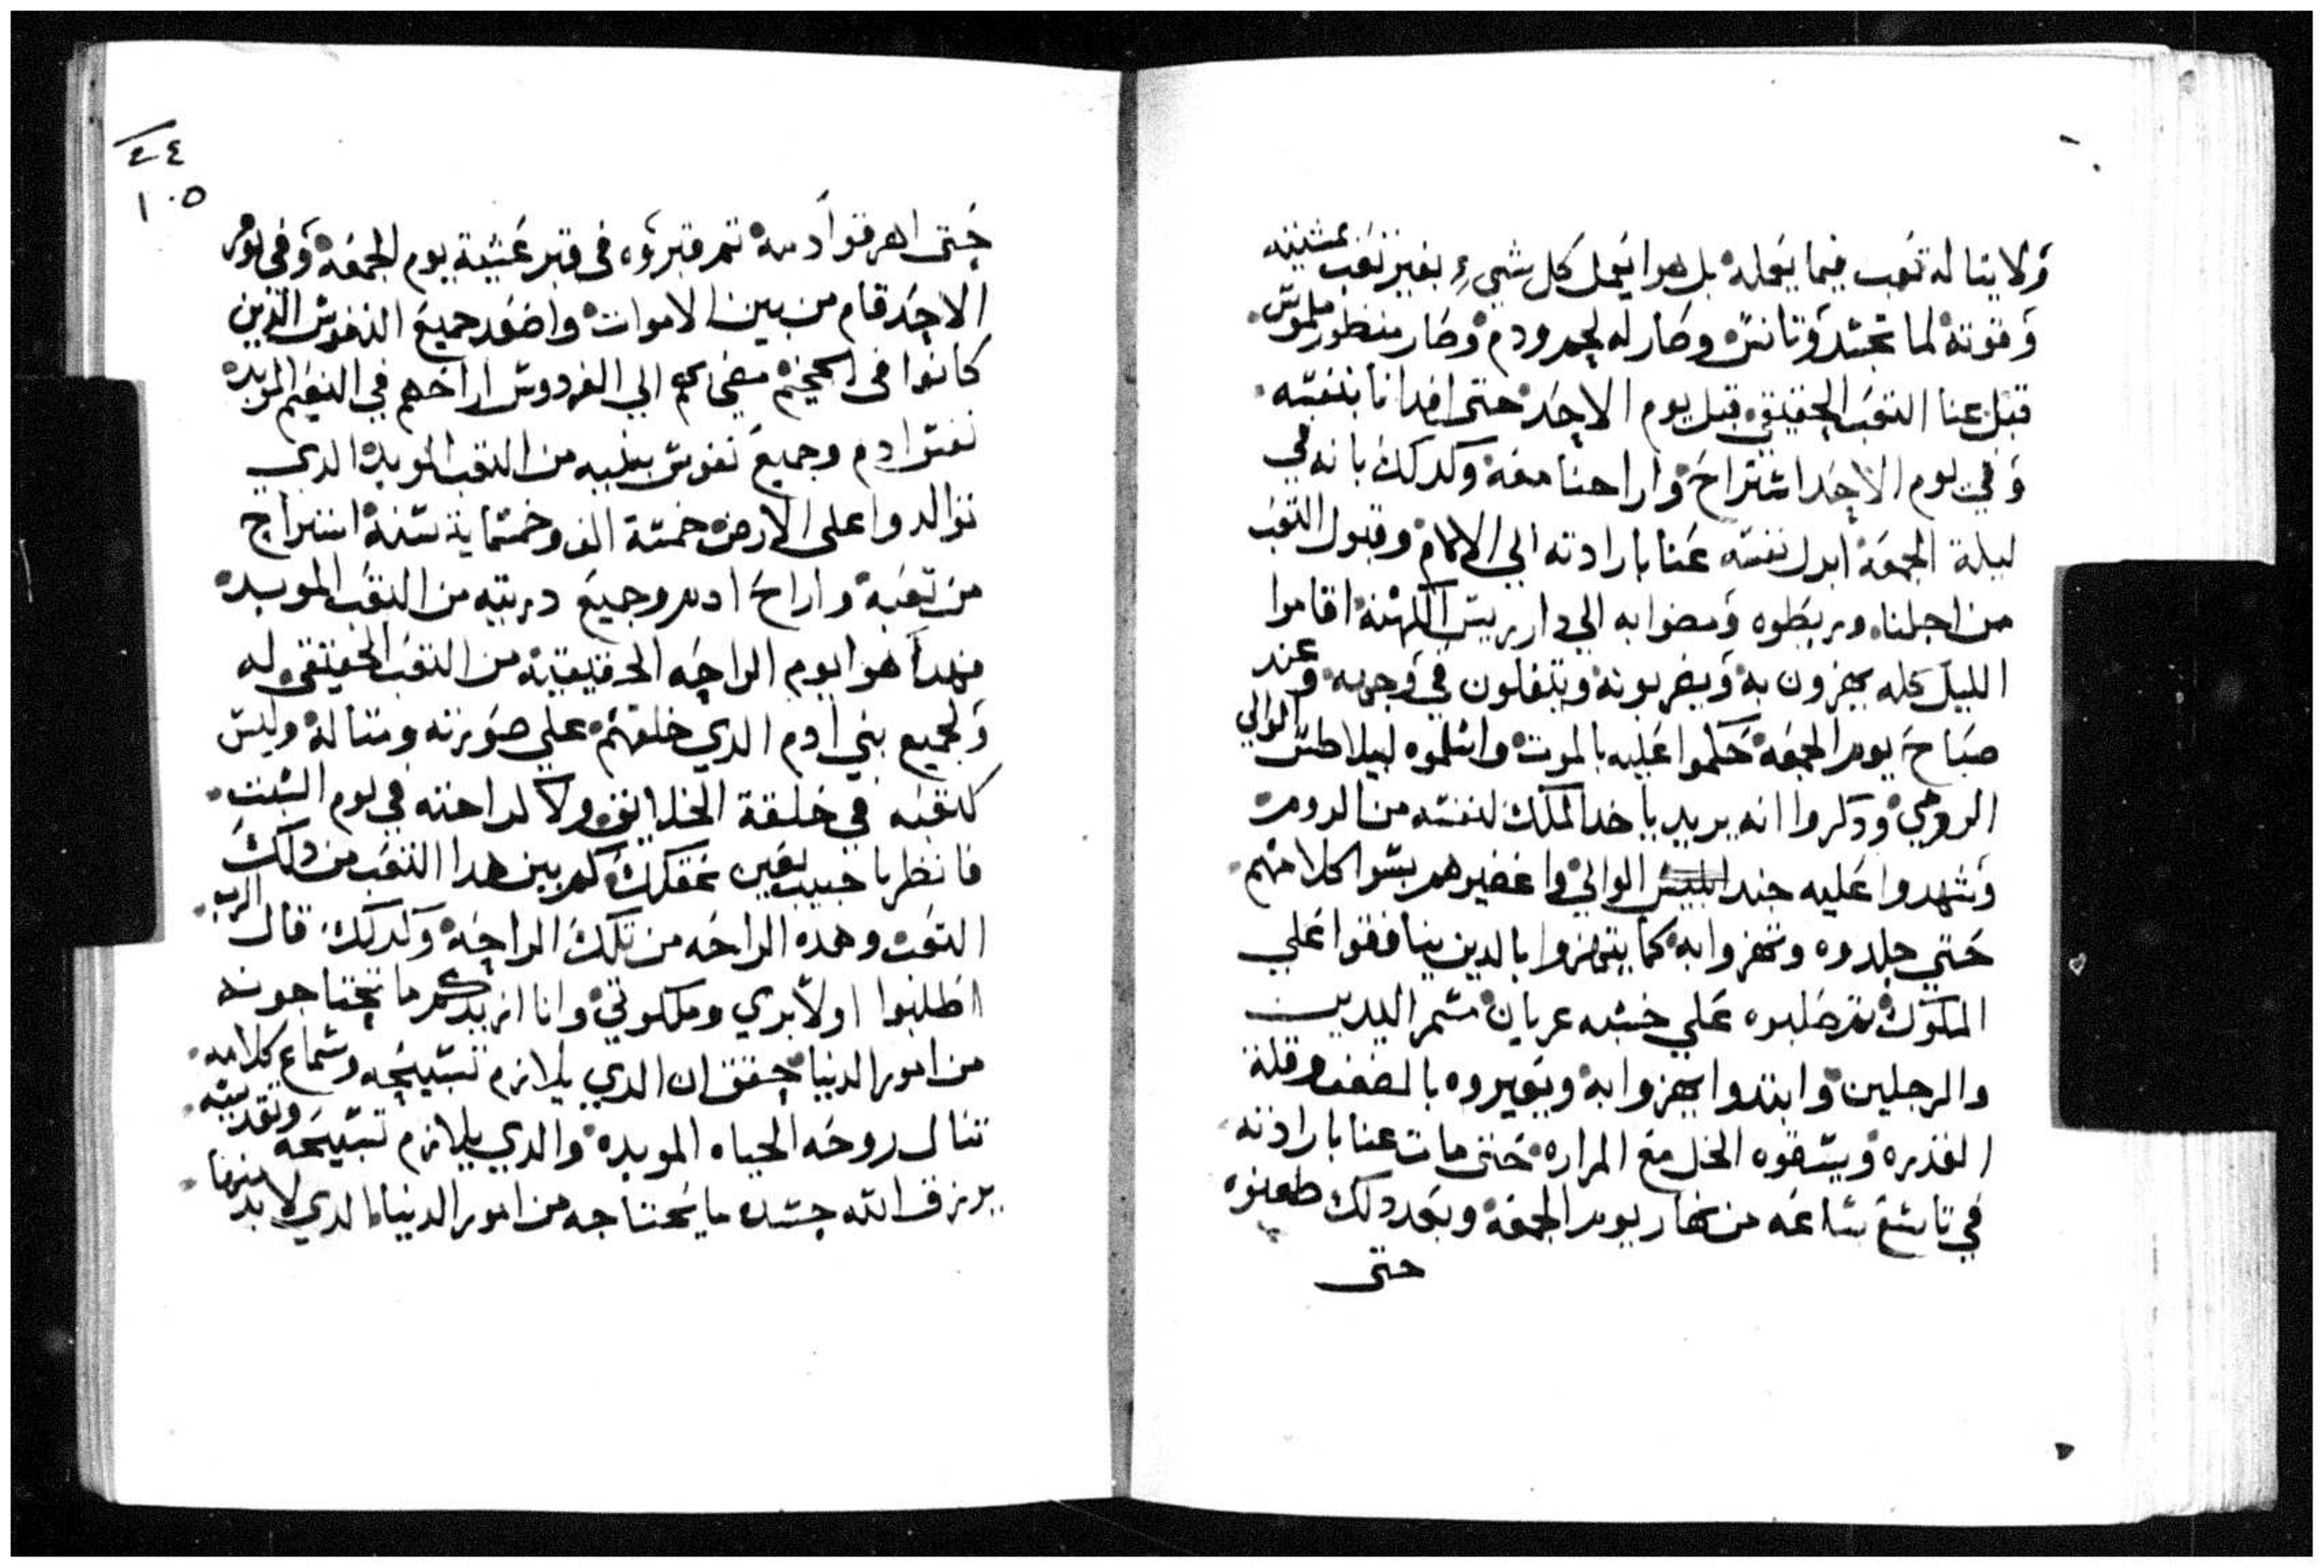 ولا يناله تعب فيما يعمله بل هوا يعمل كل شيء بغير تعب بمشيته
وقوته لما تجسد وتانس وصار له لحم ودم وصار منظور ملموس
قبل عنا التعب الحقيقي قبل يوم الاحد حتى افدانا بنفسه
وفي يوم الاحد استراح واراحنا معه وكدلك بانه في
ليلة الجمعة ابدل نفسه عنا بارادته الي الالام وقبول التعب
من اجلنا وربطوه ومضوا به الي دار رييس الكهنة اقاموا
الليل كله يهزون به ويضربونه ويتفلون في وجهه وعند
صباح يوم الجمعة حكموا عليه بالموت واسلموه لبيلاطس الوالي
الرومي ودكروا انه يريد ياخد الملك لنفسه من الروم
وشهدوا عليه جند الوالي واغضبوهم بسوا كلامهم
حتي جلدوه وتهزوا به كما يتهزوا بالدين ينافقوا علي
الملوك تم صلبوه علي خشبه عريان مسمر اليدين
والرجلين وابتدوا يهزوا به ويعيروه بالضعف وقلة
القدره ويسقوه الخل مع المراره حتى مات عنا بارادته
في تاسع ساعه من نهار يوم الجمعة وبعد دلك طعنوه
حتى
٤٤
١٠٥
حتى اهرقوا دمه تم قبروه في قبر عشية يوم الجمعة وفي يوم
الاحد قام من بين الاموات واصعد جميع النفوس الذين
كانوا في الجحيم مضى بهم الي الفردوس اراحهم في النعيم المويده
نفس ادم وجميع نفوس بنيه من التعب المويده الدي
توالدوا على الارض خمسة الف وخمسماية سنة استراح
من تعبه واراح ادم وجميع دريته من التعب المويده
فهدا هوا يوم الراحه الحقيقية من التعب الحقيقي له
ولجميع بني ادم الدي خلقهم علي صورته ومتاله وليس
كتعبه في خلقة الخلايق ولا كراحته في يوم السبت
فانظر يا حبيب بعين عقلك كم بين هدا التعب من دلك
التعب وهده الراحه من تلك الراحة وكدلك قال الرب
اطلبوا اولا بري وملكوتي وانا ازيدكم ما تحتاجونه
من امور الدنيا حقق ان الدي يلازم تسبيحه وسماع كلامه
تنال روحه الحياه المويده والدي يلازم تسبيحه وتقديسه
يرزق الله جسده ما يحتاجه من امور الدنيا الدي لا بد منها